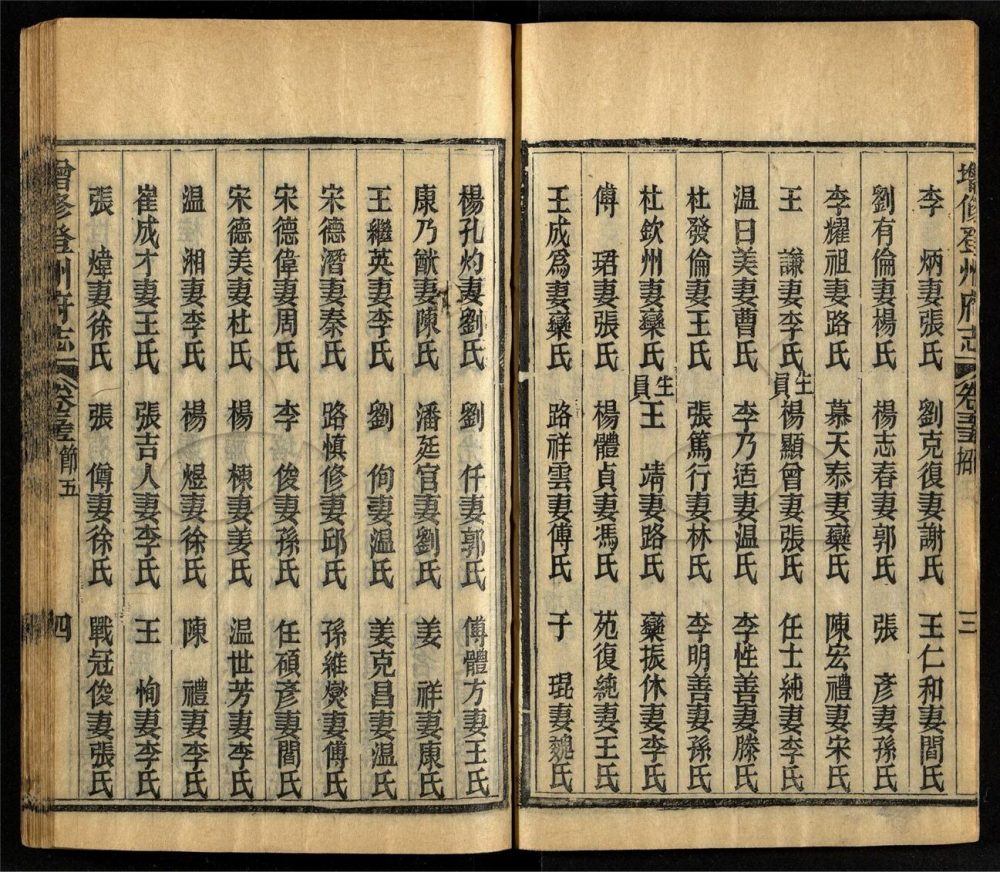 增修登州府志 卷三十五 招 三
李　炳妻張氏　劉克復妻謝氏　王仁和妻閻氏
劉有倫妻楊氏　楊志春妻郭氏　張　彥妻孫氏
李耀祖妻路氏　慕天泰妻欒氏　陳宏禮妻宋氏
王　謙妻李氏　生員楊顯曾妻張氏　任士純妻李氏
温日美妻曹氏　李乃适妻温氏　李性善妻滕氏
杜發倫妻王氏　張篤行妻林氏　李明善妻孫氏
杜欽州妻欒氏　生員王　靖妻路氏　欒振休妻李氏
傅　珺妻張氏　楊體貞妻馮氏　苑復純妻王氏
王成爲妻欒氏　路祥雲妻傅氏　于　琨妻魏氏
楊孔灼妻劉氏　劉　仟妻郭氏　傅體方妻王氏
康乃猷妻陳氏　潘廷官妻劉氏　姜　祥妻康氏
王繼英妻李氏　劉　侚妻温氏　姜克昌妻温氏
宋德潛妻秦氏　路慎修妻邱氏　孫維爕妻傅氏
宋德偉妻周氏　李　俊妻孫氏　任碩彥妻閻氏
宋德美妻杜氏　楊　棟妻姜氏　温世芳妻李氏
温　湘妻李氏　楊　煜妻徐氏　陳　禮妻李氏
崔成才妻王氏　張吉人妻李氏　王　恂妻李氏
張　煒妻徐氏　張　傳妻徐氏　戰冠俊妻張氏
增修登州府志 卷三十五 節五 四